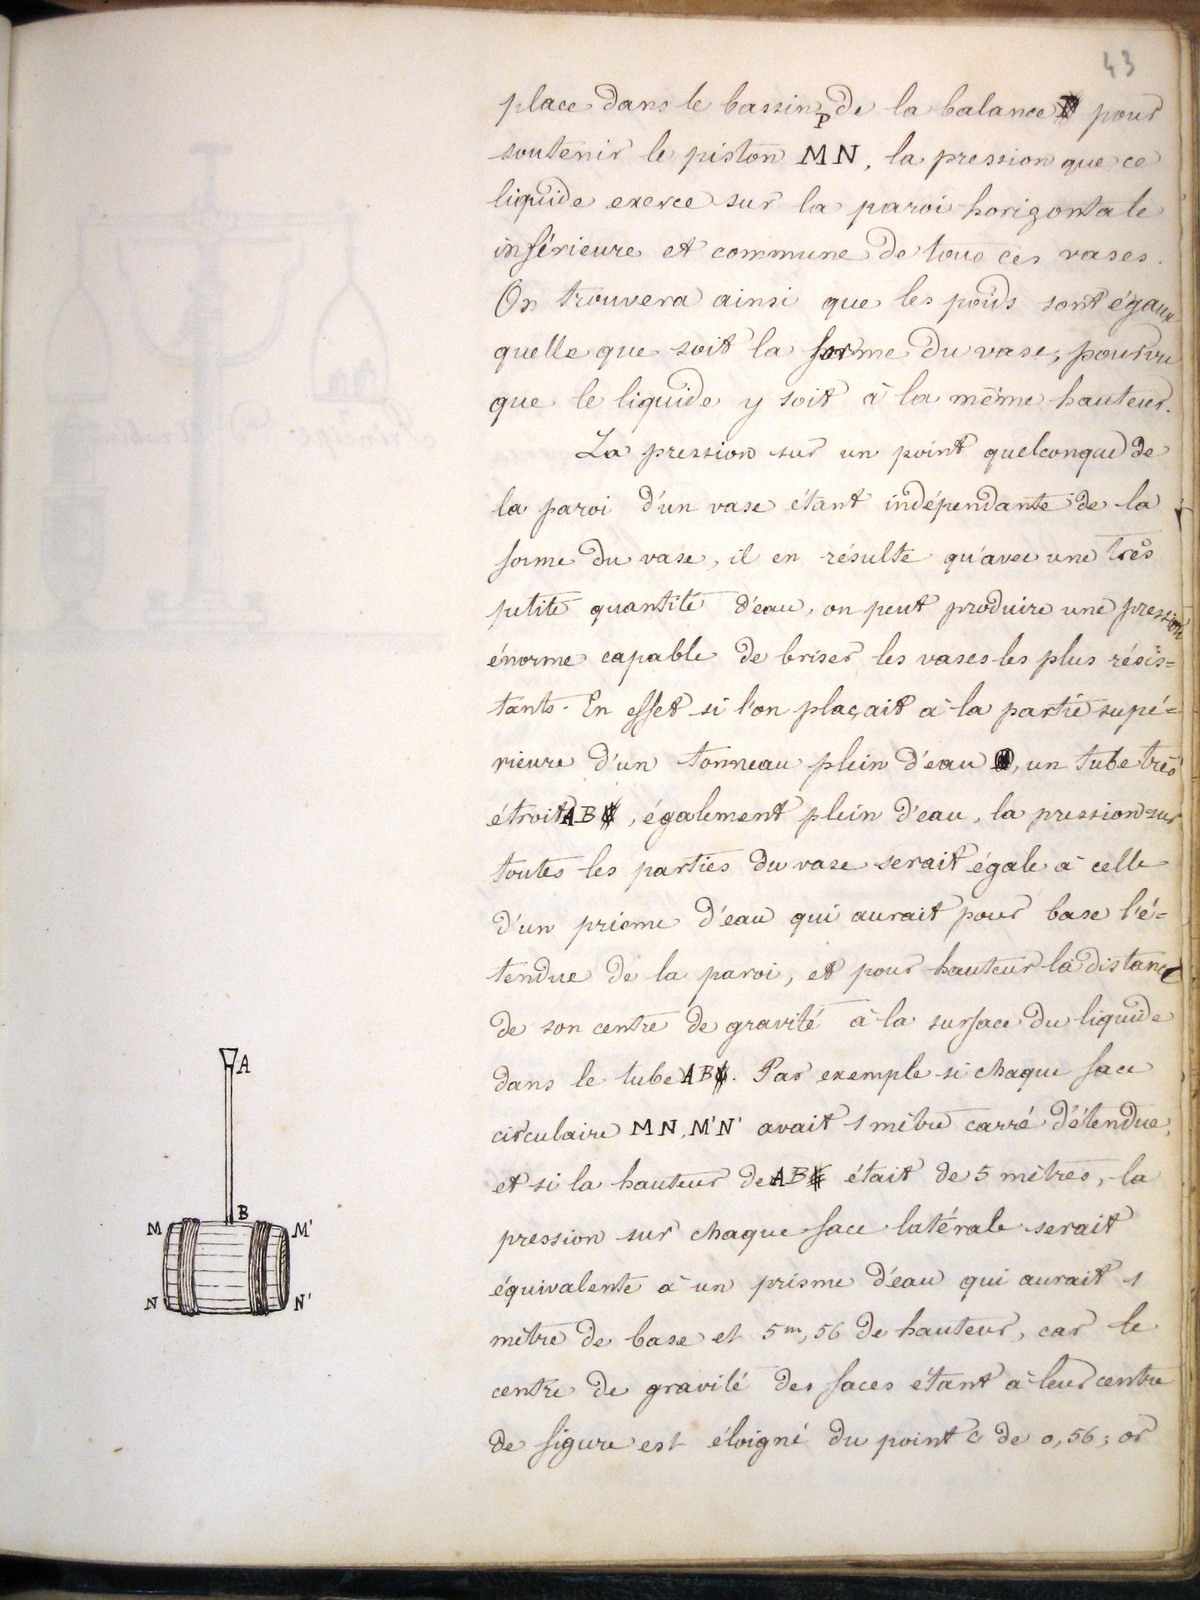 43
place dans le bassin P de la balance pour
soutenir le piston MN, la pression que ce
liquide exerce sur la paroi horizontale
inférieure et commune de tous ces vases.
On trouvera ainsi que les poids sont égaux
quelle que soit la forme du vase, pourvu
que le liquide y soit à la même hauteur.
La pression sur un point quelconque de
la paroi d'un vase étant indépendante de la
forme du vase, il en résulte qu'avec une très
petite quantité d'eau, on peut produire une pression
énorme capable de briser les vases les plus résis=
tants. En effet si l'on plaçait à la partie supé=
rieure d'un tonneau plein d'eau, un tube très
étroit AB, également plein d'eau, la pression sur
toutes les parties du vase serait égale à celle
d'un prisme d'eau qui aurait pour base l'é=
tendue de la paroi, et pour hauteur la distance
de son centre de gravité à la surface du liquide
dans le tube AB. Par exemple si chaque face
circulaire MN, M'N' avait 1 mètre carré d'étendue,
et si la hauteur de AB était de 5 mètres, la
pression sur chaque face latérale serait
équivalente à un prisme d'eau qui aurait 1
mètre de base et 5m,56 de hauteur, car le
centre de gravité des faces étant à leur centre
de figure est éloigné du point C de 0,56; or
A
B
M M'
N N'